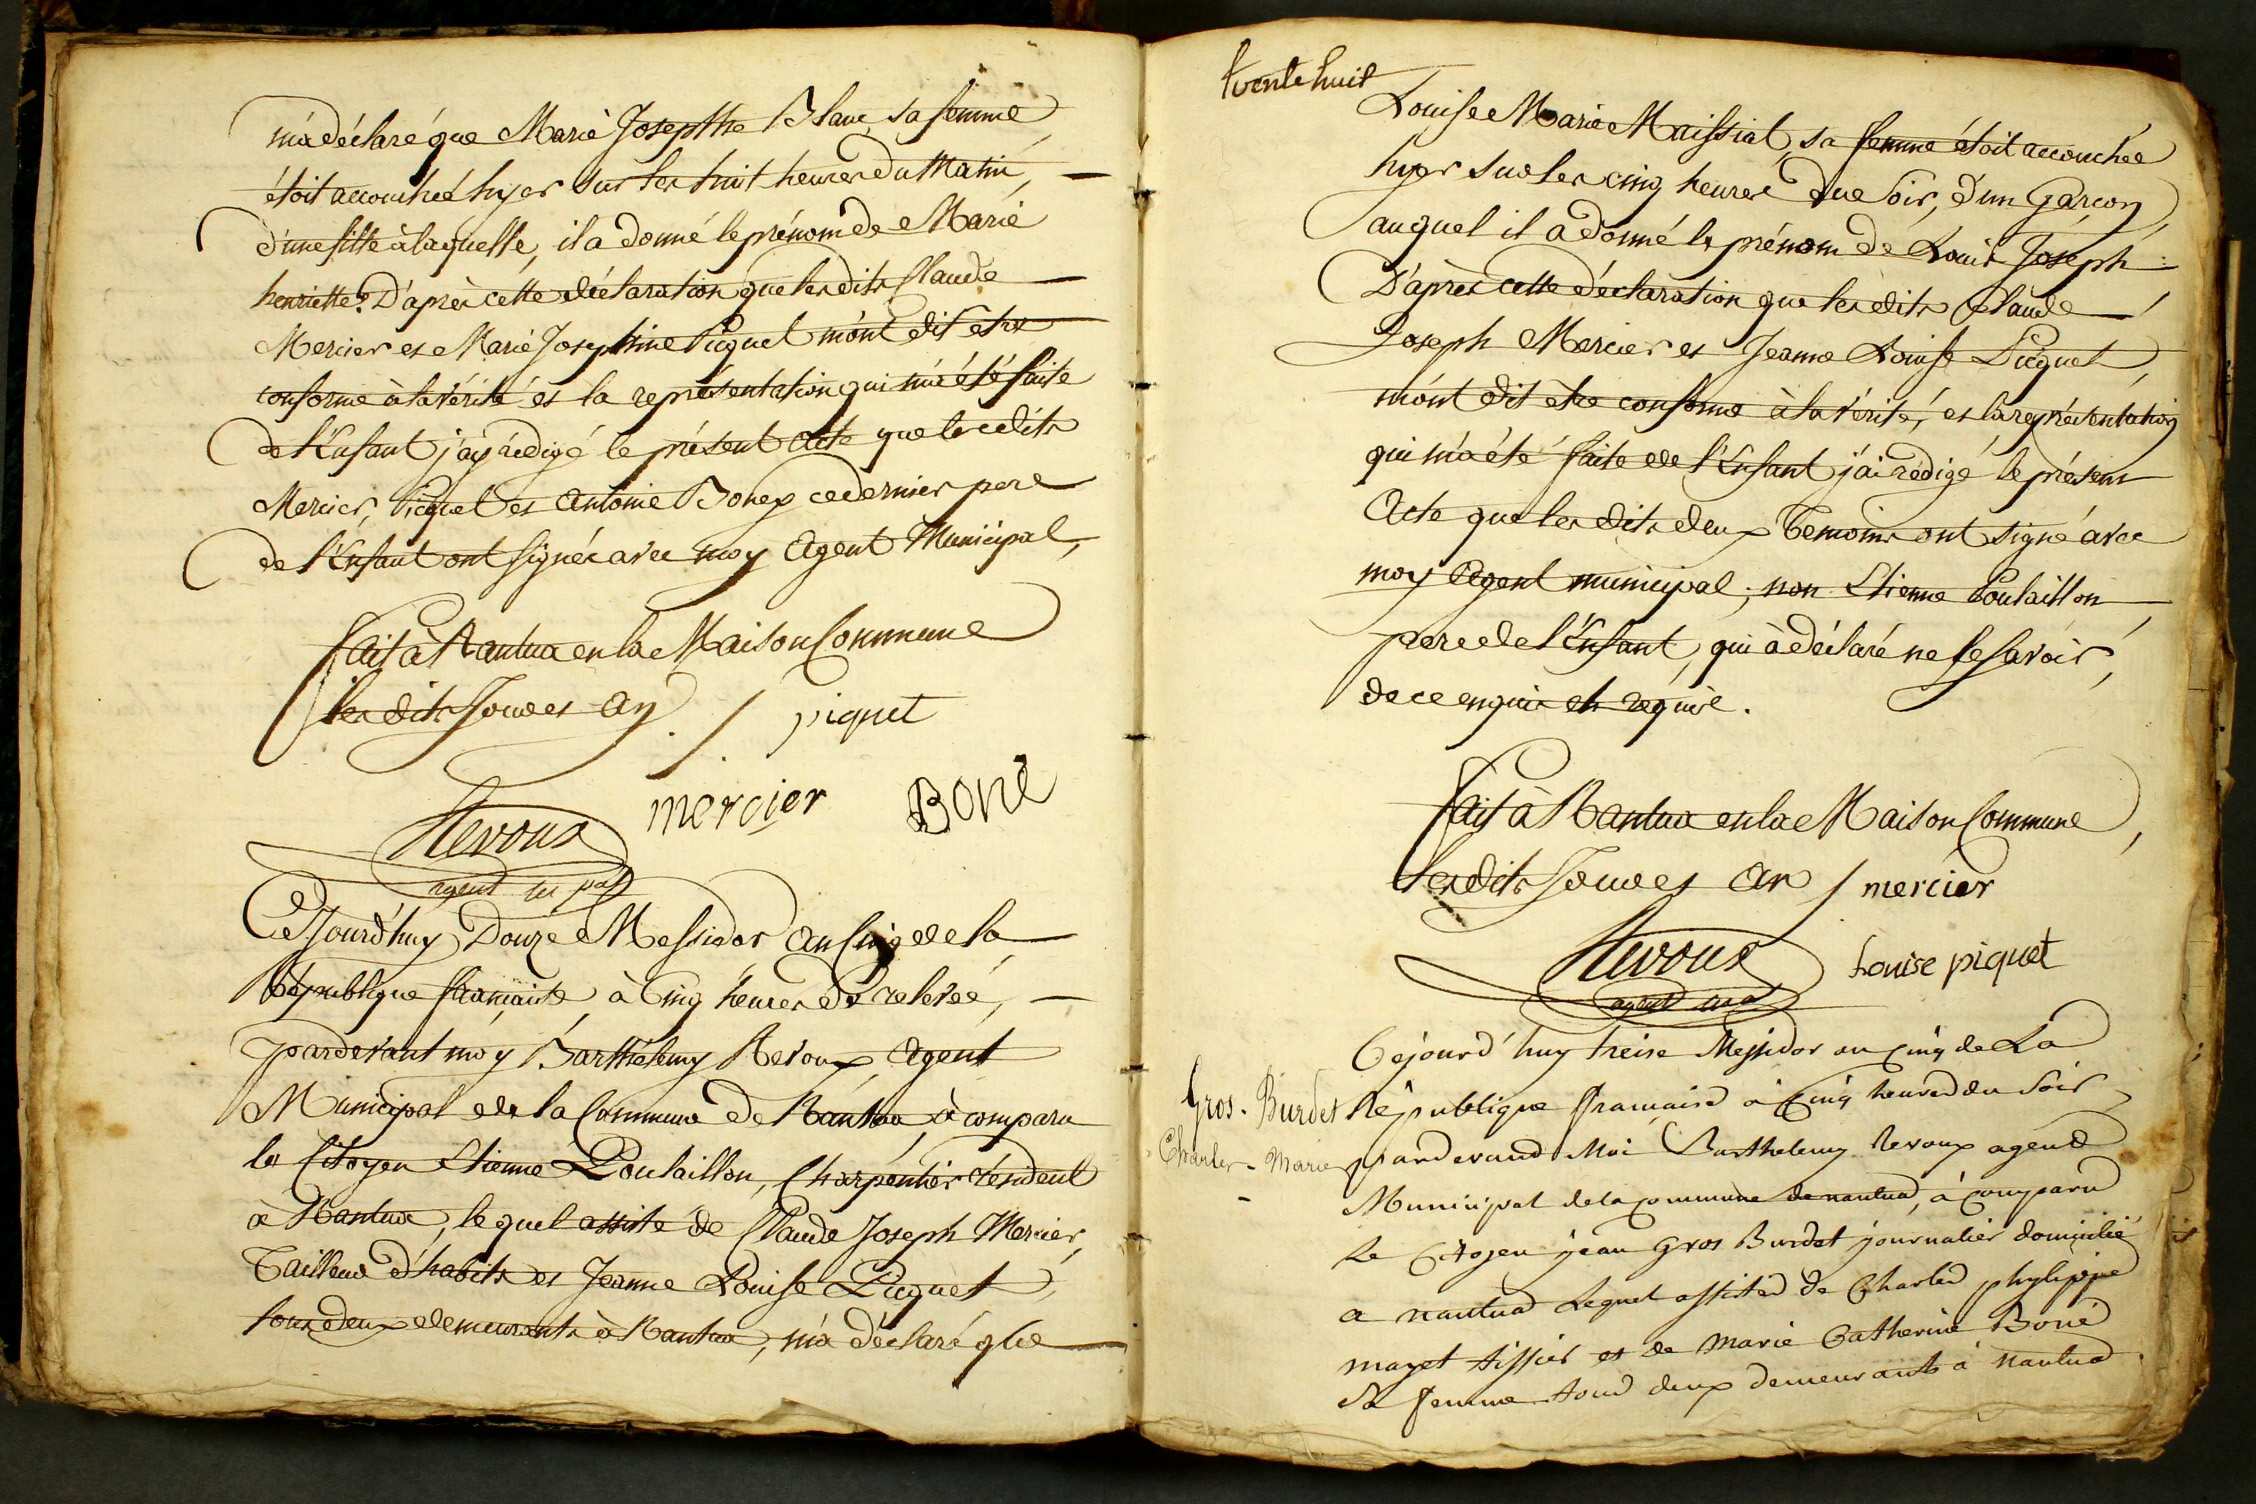 m'a déclaré que Marie Josephte Blanc, sa femme
étoit accouchée hyer sur les huit heures du Matin,
d'une fille à laquelle, il a donné le prénom de Marie
henriette. D'après cette déclaration que lesdits Claude
Mercier et Marie Josephine Picquet m'ont dit être
conforme à la vérité et la représentation qui m'a été faite
de l'Enfant j'ay rédigé le présent Acte que lesdits
Mercier, Picquet et Antoine Bonez ce dernier pere
de l'Enfant ont signés avec moy Agent Municipal,
fait à Nantua en la Maison Commune
les dits Jour et An
piquet
mercier
Boné
Revoux
agent
Cejourd'huy Douze Messidor an Cinq de la
République française, à Cinq heures de relevée,
pardevant moy Barthélemy Revoux, Agent
Municipal de la Commune de Nantua à comparu
le Citoyen Etienne Poulaillon, Charpentier résident
à Nantua, lequel assisté de Claude Joseph Mercier,
Tailleur d'habits et Jeanne Louise Picquet,
tous deux demeurants à Nantua, m'a déclaré que
trente huit
Louise Marie Maissiat, sa femme étoit accouchée
hyer sur les cinq heures du Soir, d'un Garçon
auquel il a donné le prénom de Louis Joseph.
D'après cette déclaration que lesdits Claude
Joseph Mercier et Jeanne Louise Picquet
m'ont dit etre conforme à la vérité, et la représentation
qui m'a été faite de l'Enfant j'ai rédigé le présent
Acte que les dits deux temoins ont signé avec
moy Agent municipal, non Etienne Poulaillon
pere de l'Enfant, qui à déclaré ne le savoir,
de ce enquis et requis.
fait à Nantua en la Maison Commune,
les dits Jour et An
mercier
Revoux
agent
Louise piquet
Cejourd'huy treise Messidor an Cinq de La
Gros-Burdet
République française à Cinq heures du Soir
Charles-Marie
pardevand Moi Barthelemy Revoux agend
Municipal de la Commune de nantua, à comparu
Le Citoyen jean gros Burdet journalier domicilié
a nantua Lequel assisted de Charles phylippe
mayet tissier et de marie Catherine Boné
Sa femme tous deux demeurants à nantua